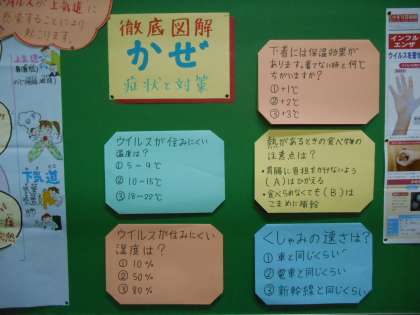 ウイルスが上気道に
感染することにより
起こります。
徹底図解
かぜ
症状と対策
下着には保温効果が
あります。着てない時と何℃
ちがいますか?
①+1℃
②+2℃
③+3℃
インフル
エンザ
ウイルスが住みにくい
温度は?
①5~9℃
②10~15℃
③18~20℃
熱があるときの食べ物の
注意点は?
・胃腸に負担をかけないよう
(A)はひかえる
・食べられなくても(B)は
こまめに補給
ウイルスが住みにくい
湿度は?
①10%
②50%
③80%
くしゃみの速さは?
①車と同じくらい
②電車と同じくらい
③新幹線と同じくらい
上気道
下気道